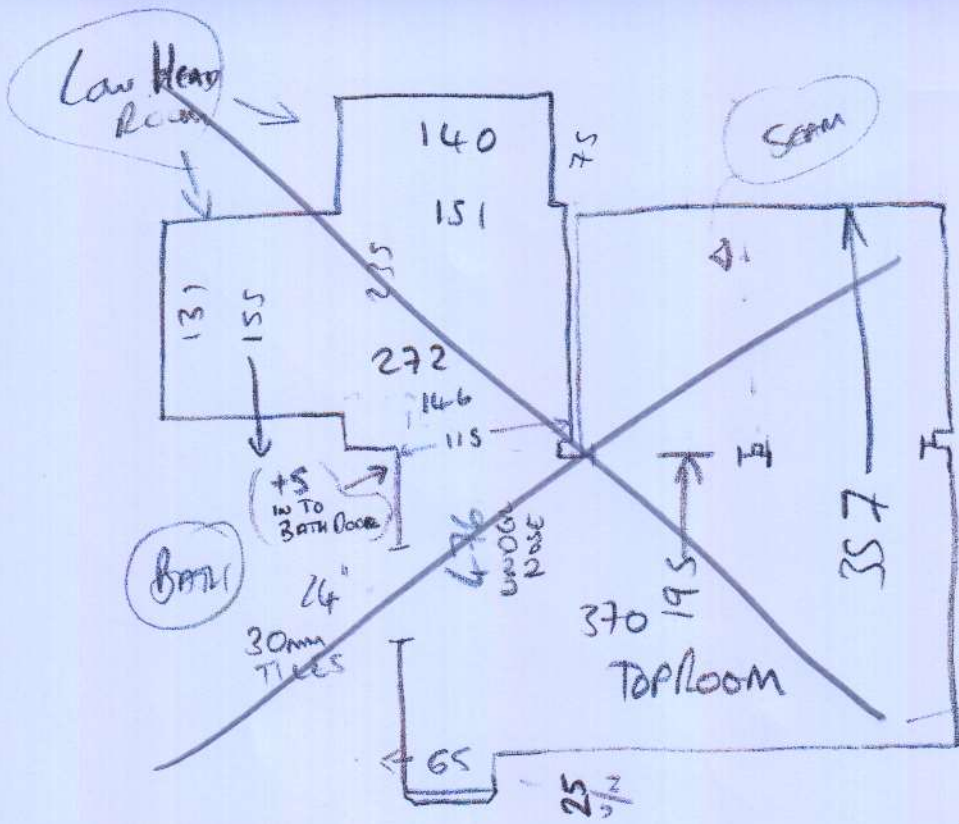 Low Head
Room
140
75
SEAM
151
131
155
235
272
146
115
(+5
IN TO
BATH DOOR)
BATH
24"
30mm
TILES
476
UNDER
NOSE
370
195
357
TOP ROOM
65
25